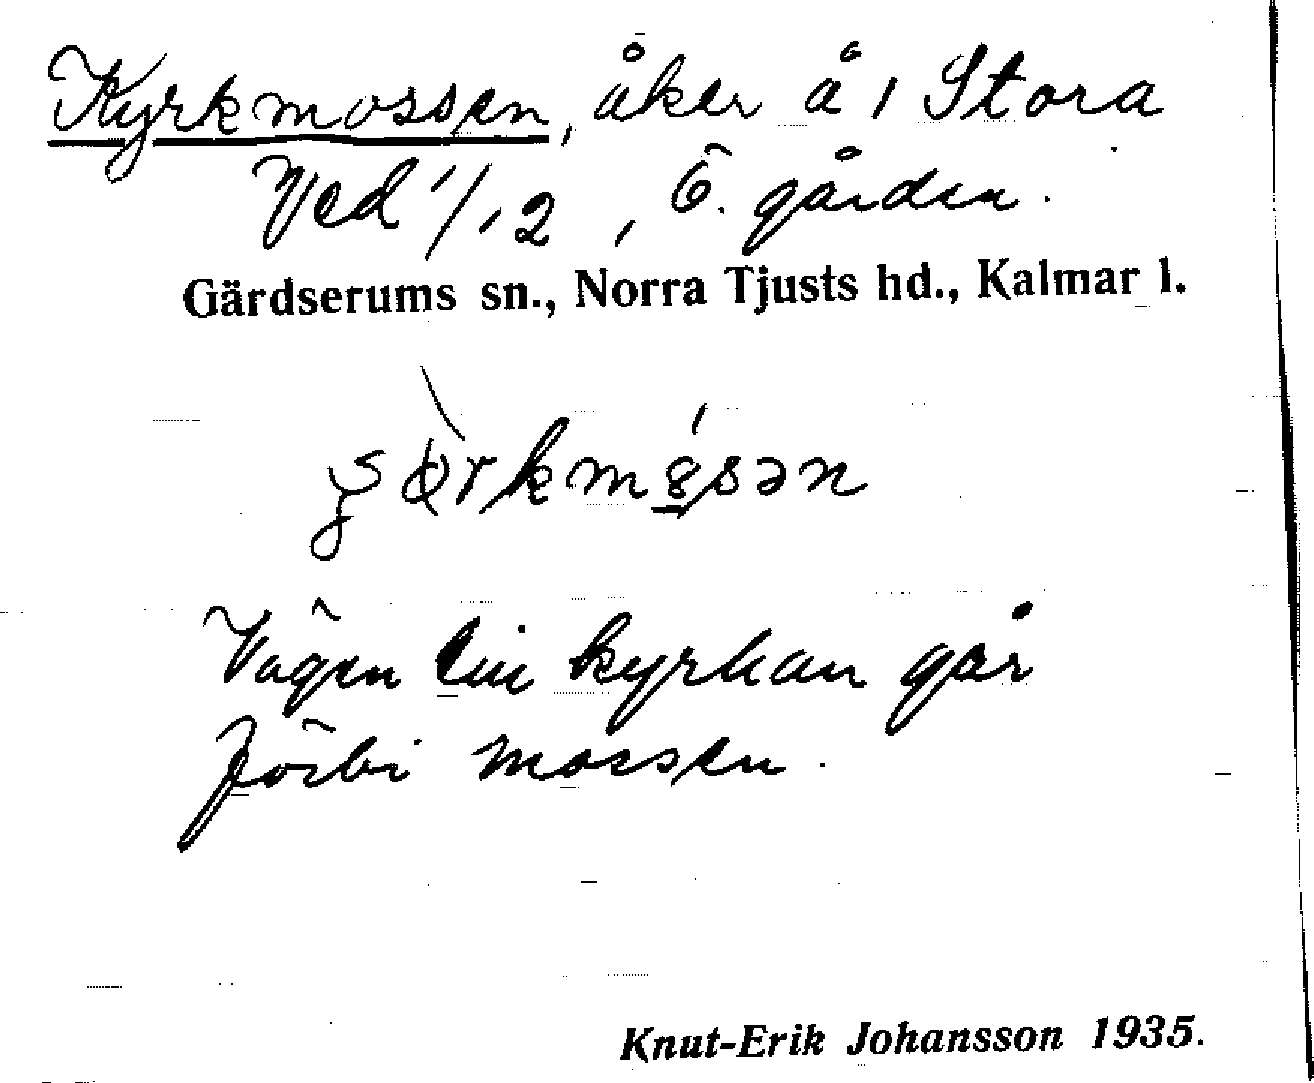 Kyrkmossen, åker å 1 Stora
Ved 1/12, Ö. gården.
Gärdserums sn., Norra Tjusts hd., Kalmar l.
Vägen till kyrkan går
förbi mossen.
Knut-Erik Johansson 1935.